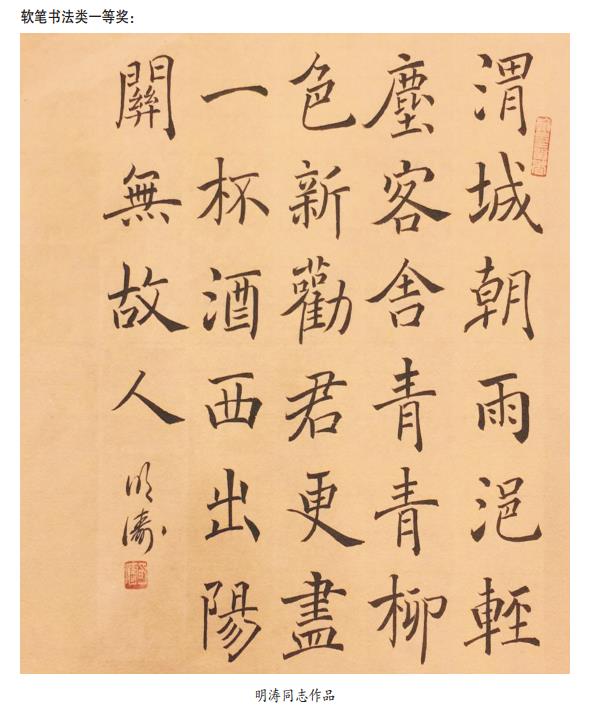 软笔书法类一等奖：
渭城朝雨浥輕
塵客舍青青柳
色新勸君更盡
一杯酒西出陽
關無故人
明濤
明涛同志作品